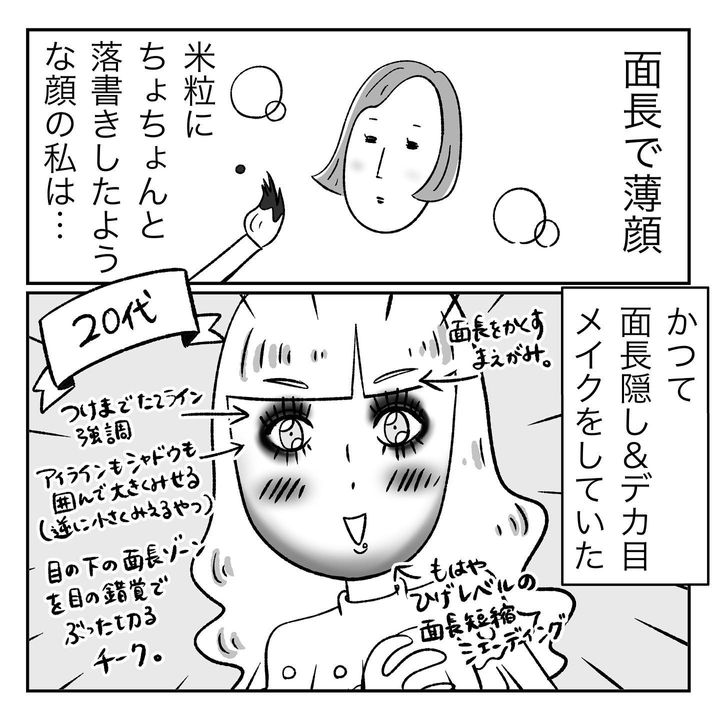 面長で薄顔
米粒に
ちょちょんと
落書きしたよう
な顔の私は…
かつて
面長隠し&デカ目
メイクをしていた
20代
面長をかくす
まえがみ。
つけまでたてライン
強調
アイラインもシャドウも
囲んで大きくみせる
(逆に小さくみえるやつ)
目の下の面長ゾーン
を目の錯覚で
ぶった切る
チーク。
もはや
ひげレベルの
面長短縮
シェンディング